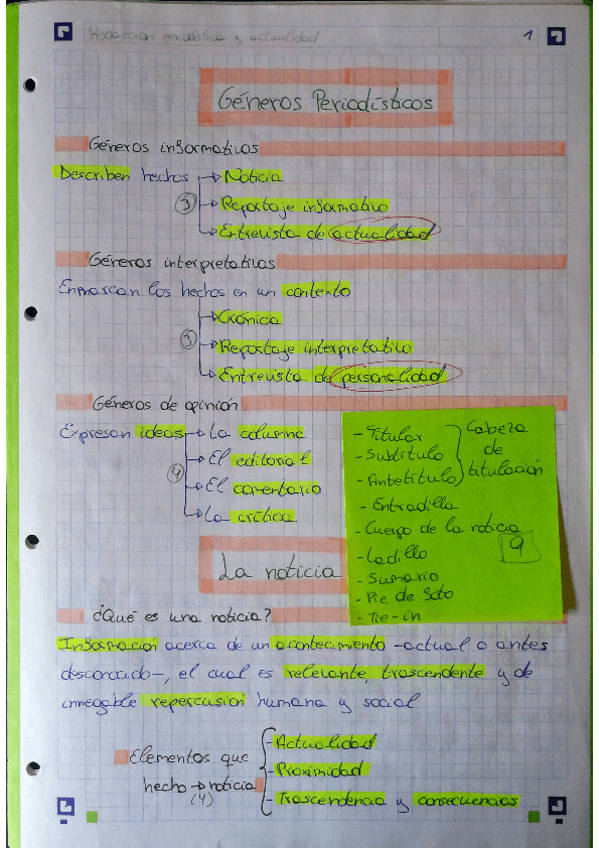 Redacción periodística y actualidad
1
Géneros Periodísticos
Géneros informativos
Describen hechos → Noticia
③ → Reportaje informativo
→ Entrevista de actualidad
Géneros interpretativos
Enmarcan los hechos en un contexto
→ Crónica
③ → Reportaje interpretativo
→ Entrevista de personalidad
Géneros de opinión
Expresan ideas → La columna
→ El editorial
④ → El comentario
→ La crítica
- Titular
- Subtítulo
- Antetítulo
Cabeza
de
titulación
- Entradilla
- Cuerpo de la noticia
- Ladillo
9
- Sumario
- Pie de foto
- Tie-in
La noticia
¿Qué es una noticia?
Información acerca de un acontecimiento -actual o antes
desconocido-, el cual es relevante, trascendente y de
innegable repercusión humana y social
Elementos que
hecho → noticia
(4)
- Actualidad
- Proximidad
- Trascendencia y consecuencias